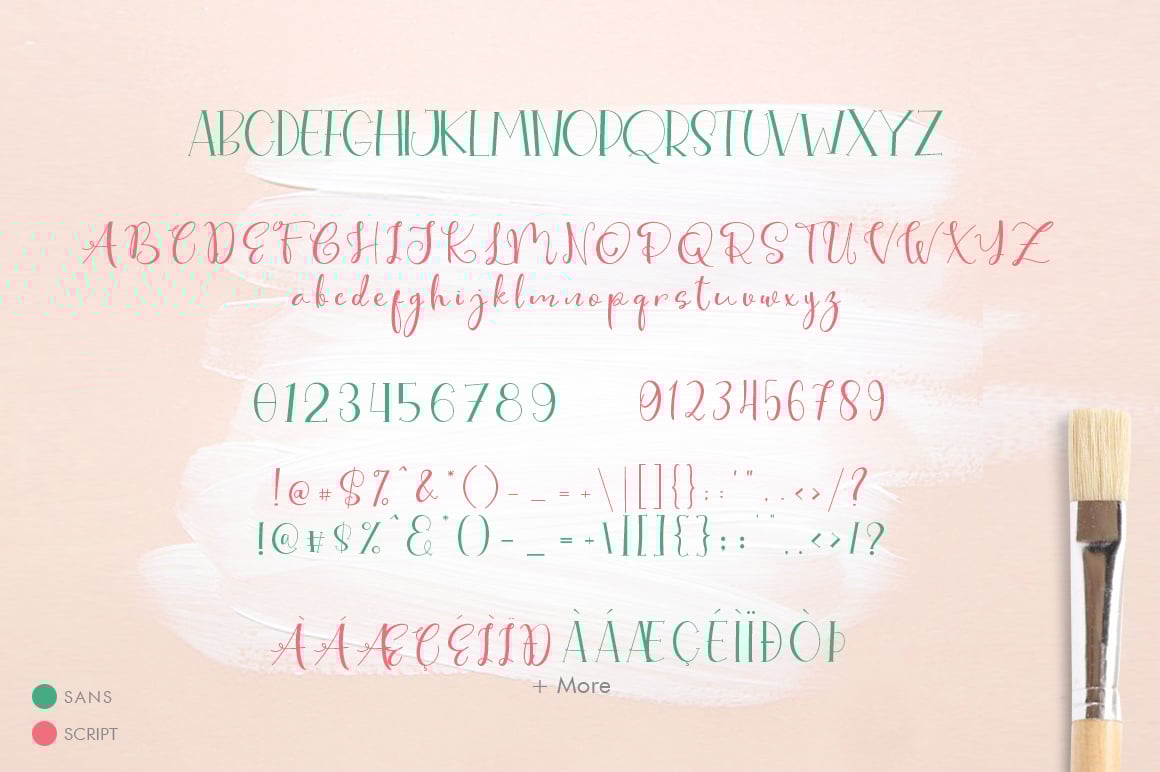 ABCDEFGHIJKLMNOPQRSTUVWXYZ
ABCDEFGHIJKLMNOPQRSTUVWXYZ
abcdefghijklmnopqrstuvwxyz
0123456789 0123456789
!@#$%^&*()-_=+\|[]{};:'",.<>/?
!@#$%^&*()-_=+\|[]{};:'",.<>/?
ÀÁÆÇÉÌÏÐ ÀÁÆÇÉÌÏÐÒÞ
+ More
SANS
SCRIPT